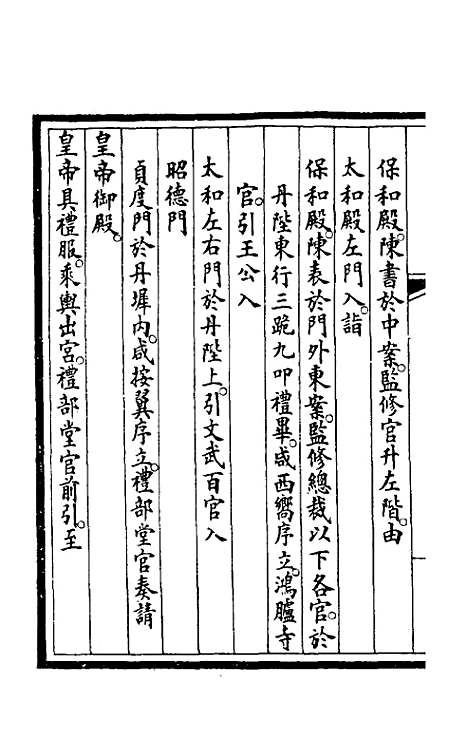 保和殿。陳書於中案。監修官升左階。由
太和殿左門入。詣
保和殿。陳表於門外東案。監修總裁以下各官。於
丹陛東行三跪九叩禮畢。咸西嚮序立。鴻臚寺
官。引王公入
太和左右門於丹陛上。引文武百官入
昭德門
貞度門於丹墀内。咸按翼序立。禮部堂官奏請
皇帝御殿。
皇帝具禮服。乘輿出宮。禮部堂官前引。至